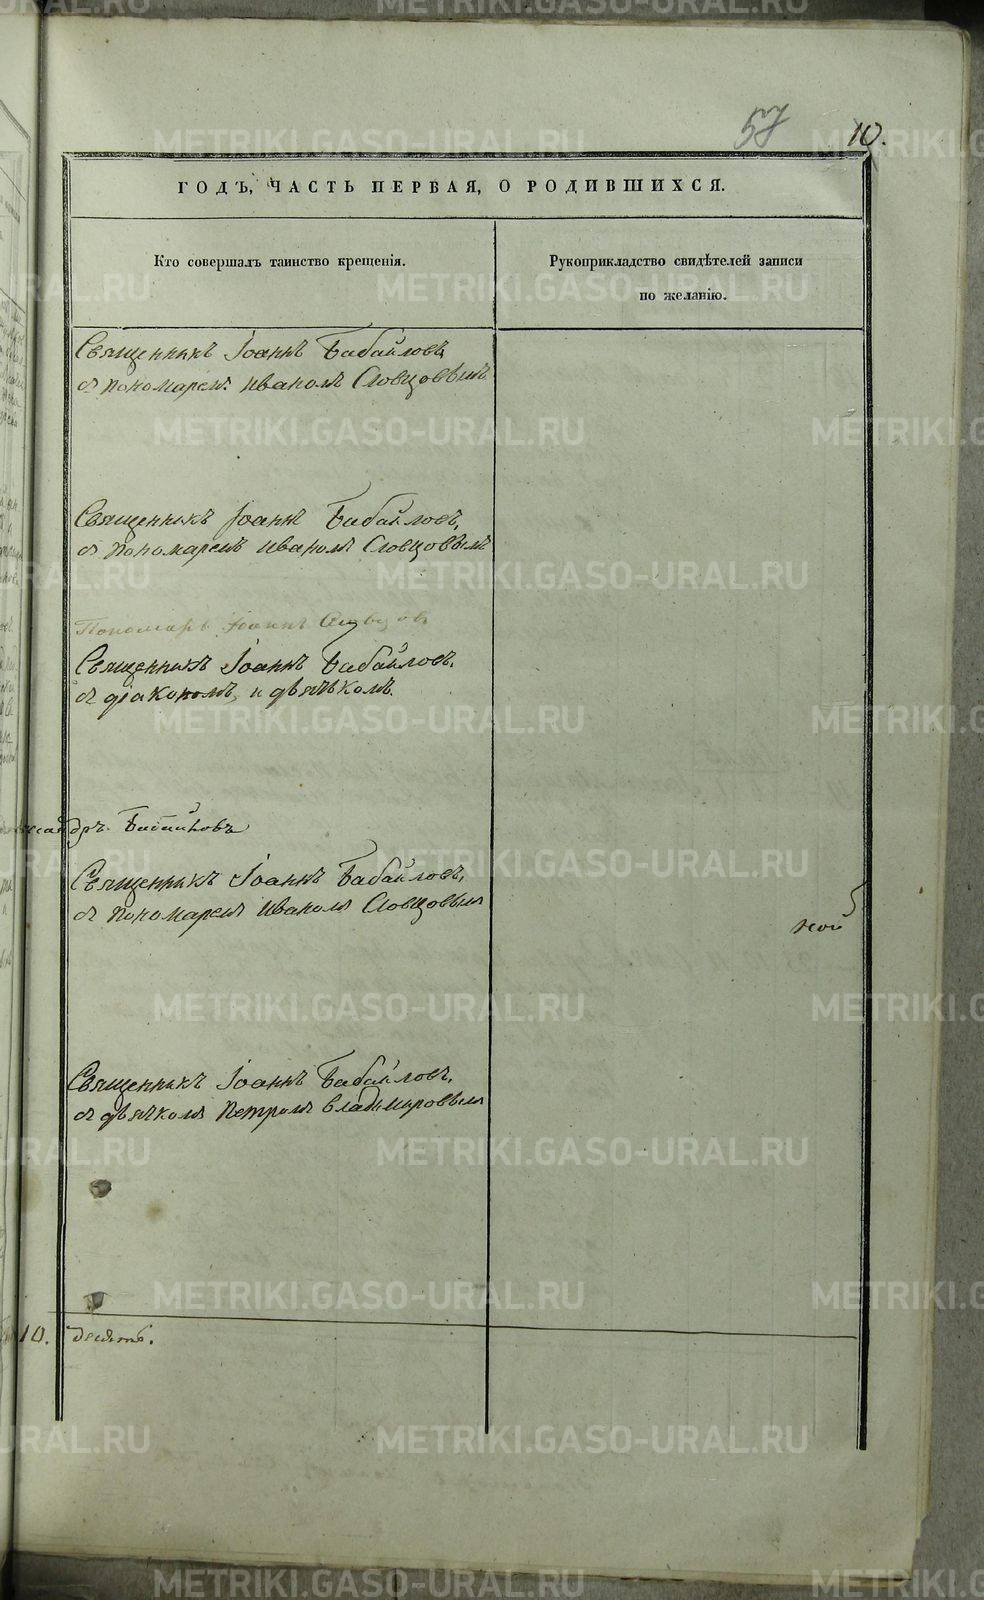 57 10.
ГОДЪ, ЧАСТЬ ПЕРВАЯ, О РОДИВШИХСЯ.
Кто совершалъ таинство крещенія.
Рукоприкладство свидѣтелей записи
по желанію.
Священникъ Іоаннъ Бабайловъ,
съ пономаремъ Иваномъ Словцовымъ
Священникъ Іоаннъ Бабайловъ,
съ пономаремъ Иваномъ Словцовымъ
Пономарь Іоаннъ Словцовъ
Священникъ Іоаннъ Бабайловъ,
съ діакономъ, и дьячкомъ.
Бабайловъ
Священникъ Іоаннъ Бабайловъ,
съ пономаремъ Иваномъ Словцовымъ
ной
Священникъ Іоаннъ Бабайловъ,
съ дьячкомъ Петромъ Владимировымъ
10. десять.
METRIKI.GASO-URAL.RU